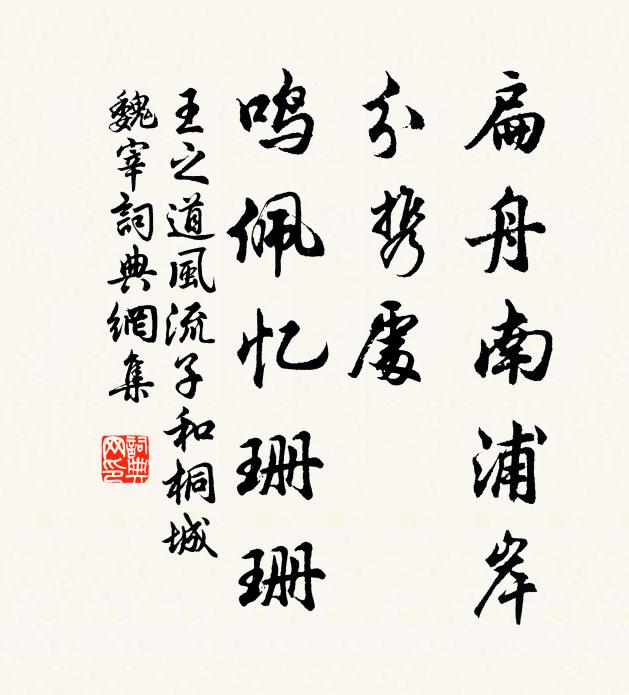 扁舟南浦岸
分携處
鸣佩忆珊珊
王之道風流子和桐城
魏宰詞典網集
詞典网印